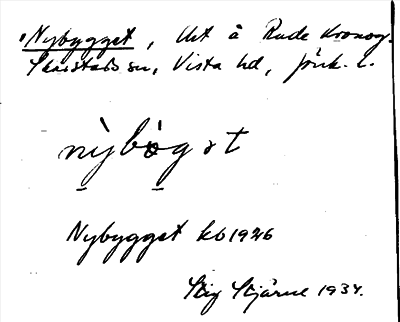 Nybygget, Uet å Rude Kronog.
Skärstads sn, Vista hd, Jönk. l.
nỳbøgət
Nybygget kb 1926
Stig Stjärne 1934.